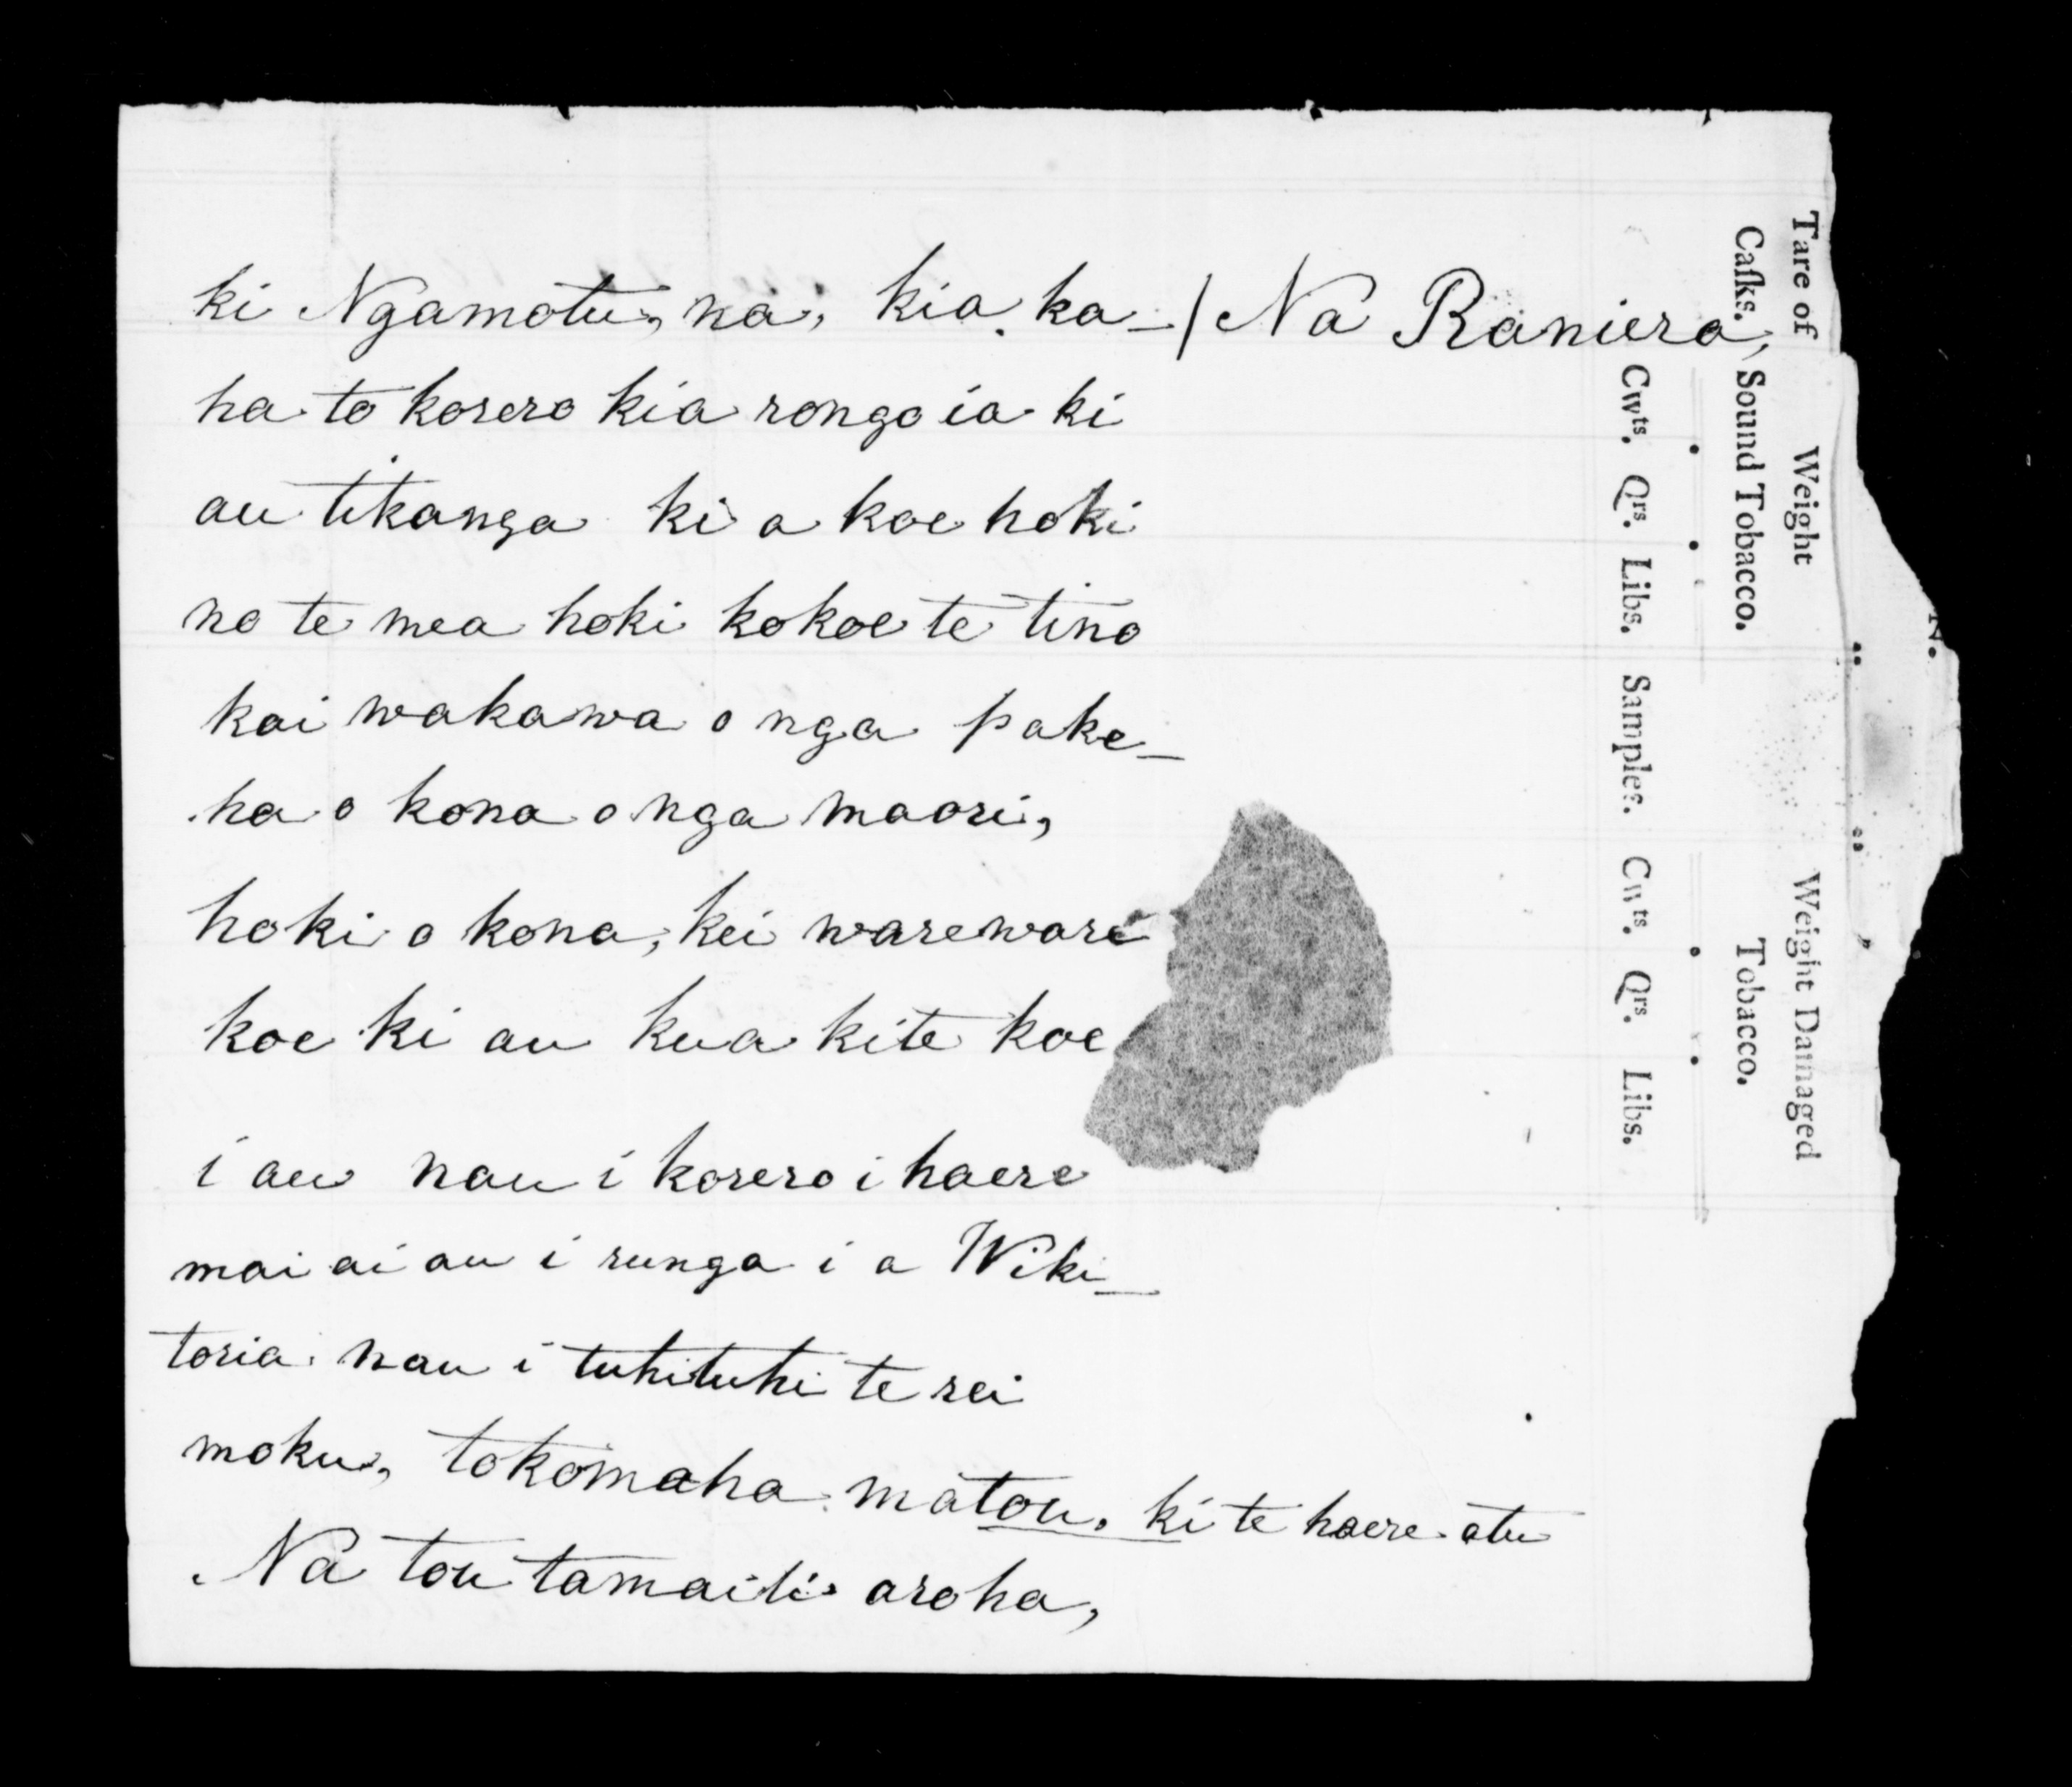 ki Ngamotu, na, kia ka-/ Na Raniera,
ha to korero kia rongo ia ki
au tikanga ki a koe hoki
no te mea hoki kokoe te tino
kai wakawa o nga pake-
ha o kona o nga maori,
hoki o kona, kei wareware
koe ki au kua kite koe
i au nau i korero i haere
mai ai au i runga i a Wiki-
toria nau i tuhituhi te rei
moku, tokomaha matou, ki te haere atu
Na tou tamaiti aroha,
Tare of Weight Weight Damaged
Caſks. Sound Tobacco. Tobacco.
Cwts. Qrs. Libs. Samples. Cwts. Qrs. Libs.
N.